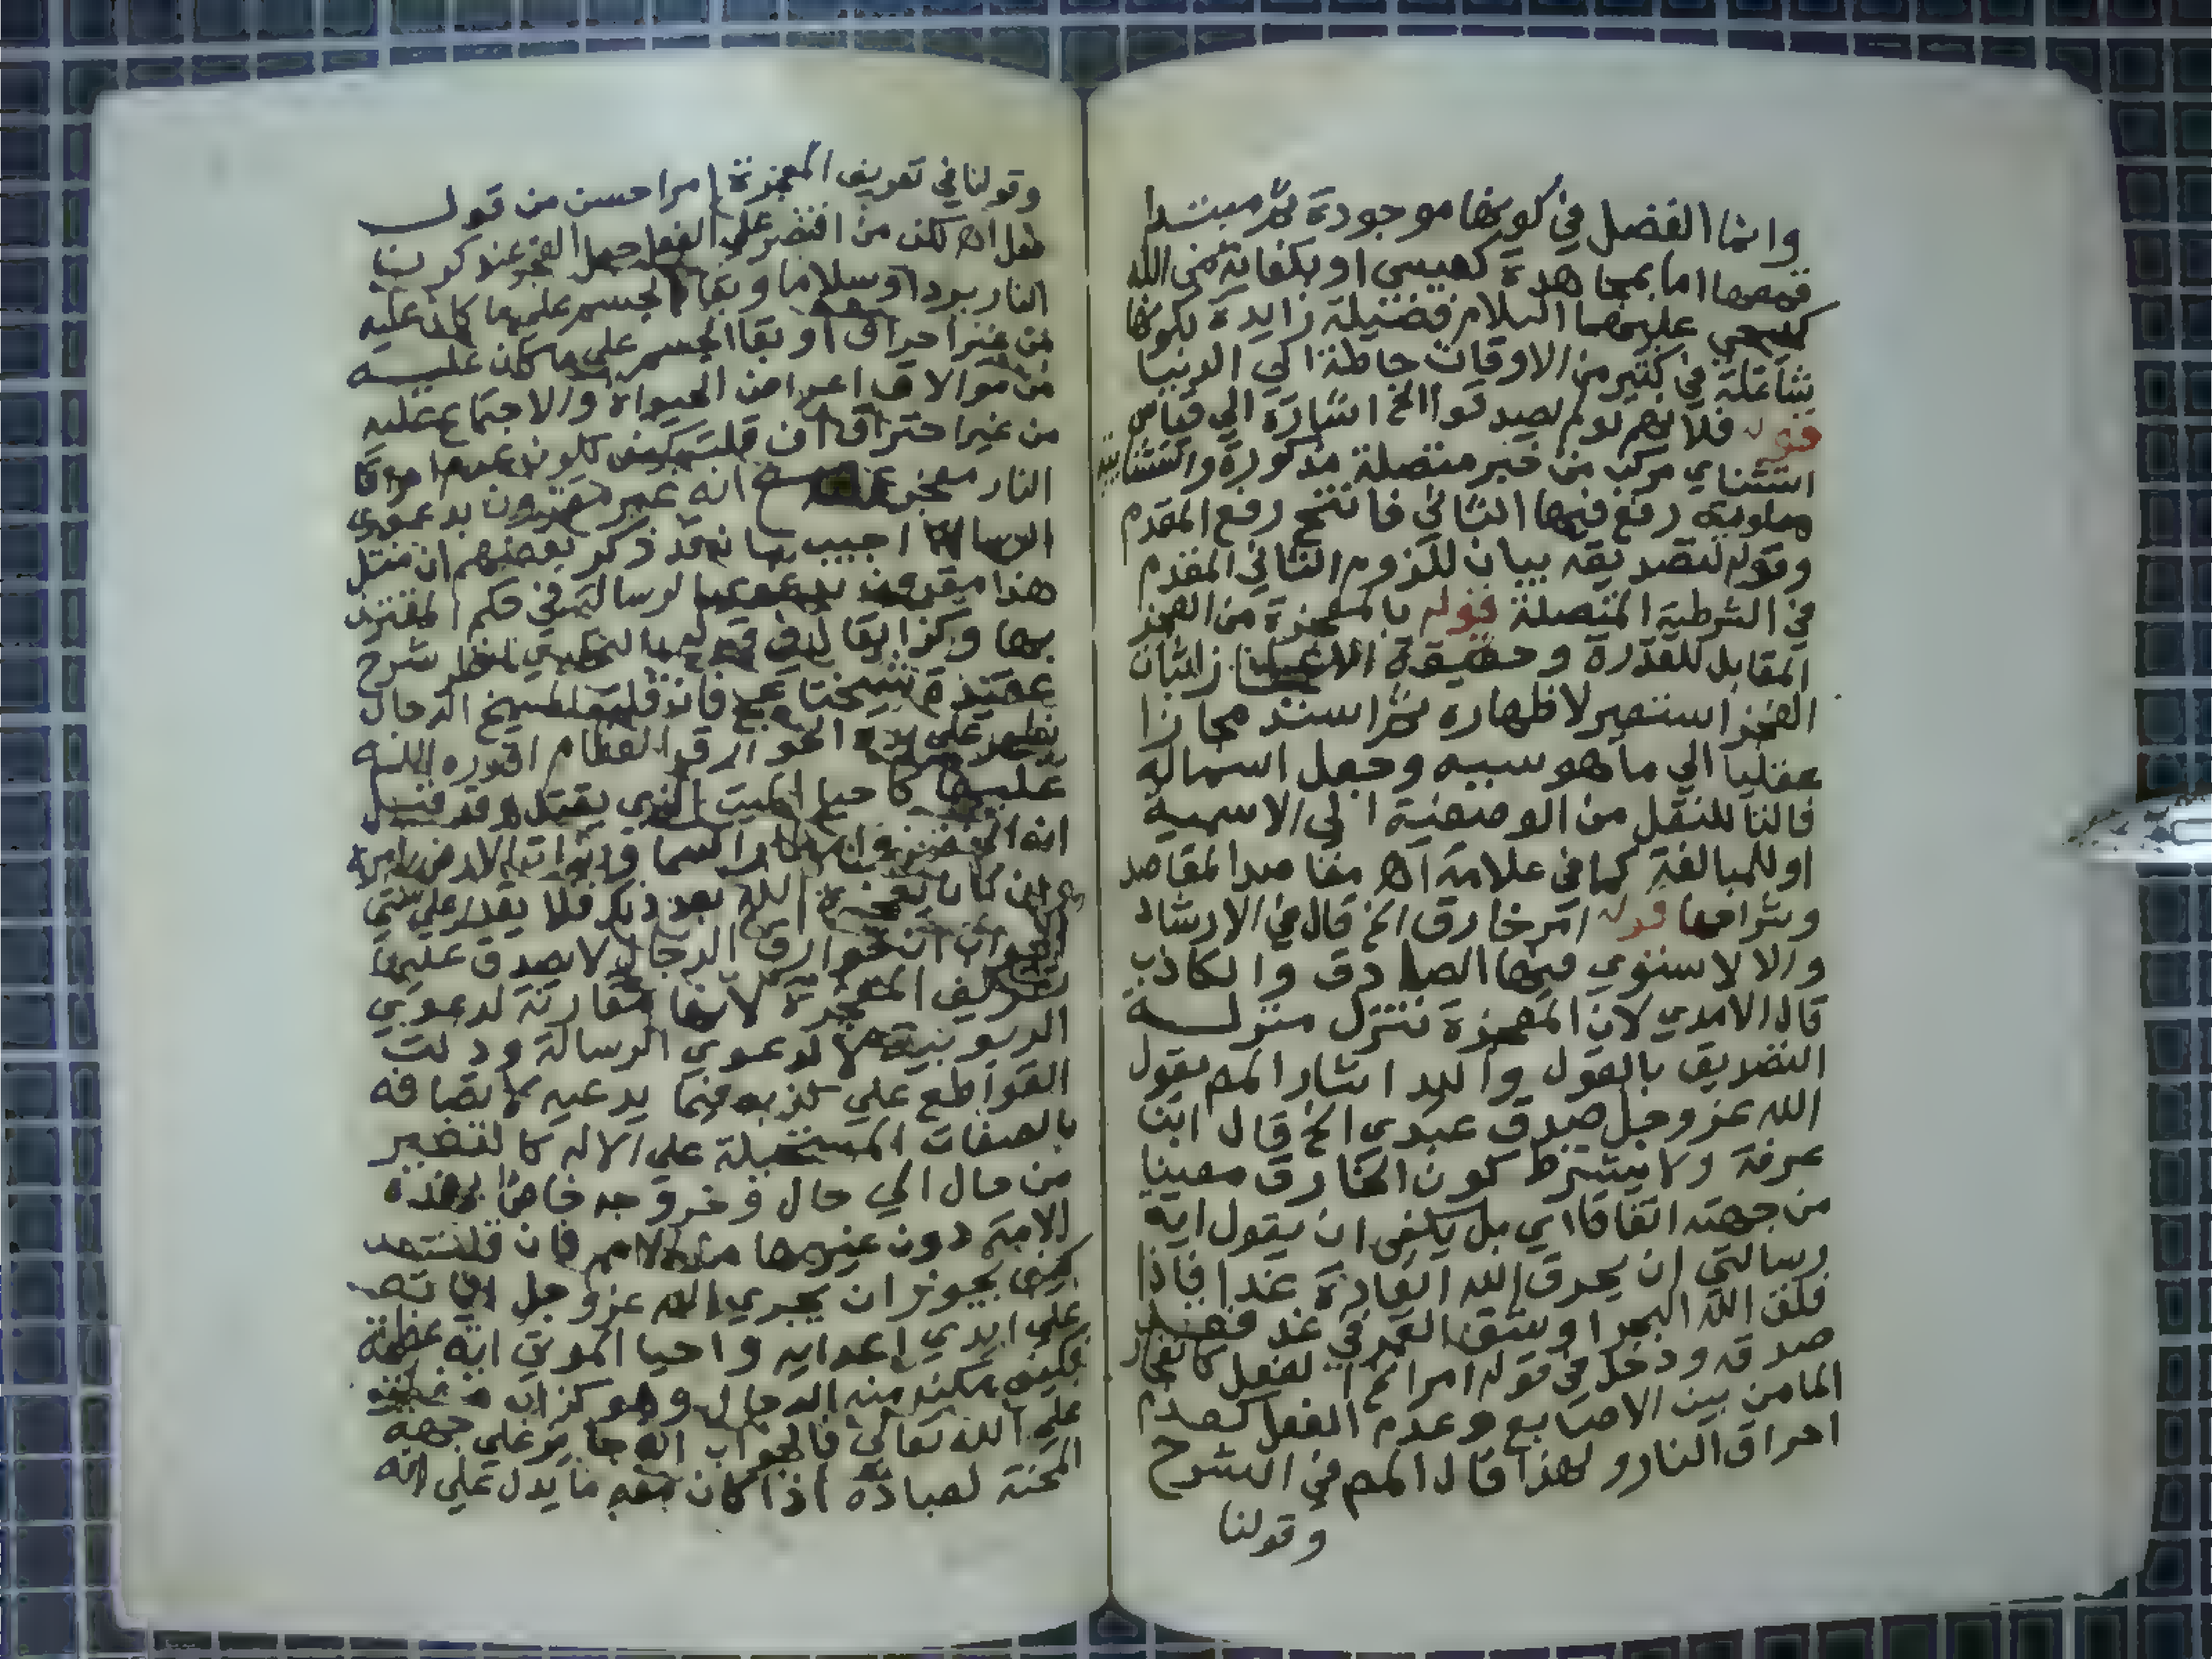 وانما الفضل في كونها موجودة ثم مبتدا
قمعها اما بمجاهدة كعيسى او بكفاية من الله
كيحيي عليهما السلام فضيلة زايدة لكونها
شاغلة في كثير من الاوقات حاطة الي الدنيا
قوله فلانهم لو لم يصدقوا الخ اشارة الي قياس
استثناي مركب من خبر متصلة مذكورة واستثنايية
مطوية رفع فيها التالي فانتج رفع المقدم
وقوله لتصديقه بيان للزوم التالي المقدم
في الشرطية المتصلة قوله بالمعجزة من العجز
المقابل للقدرة وحقيقة الاعجاز اثبات
العجز استعير لاظهاره ثم اسند مجازا
عقليا الي ما هو سببه وجعل اسما له
فالتا للنقل من الوصفية الي الاسمية
او للمبالغة كما في علامة اه مقاصد المقاصد
قوله امر خارق الخ قال في الارشاد
والا لاستوي فيها الصادق والكاذب
قال الامدي لان المعجزة تنزل منزلة
التصديق بالقول واليه اشار المص بقول
الله عز وجل صدق عبدي الخ قال ابن
عرفة ولا يشترط كون الخارق معينا
من جهته اتفاقا اي بل يكفي ان يقول اية
رسالتي ان يخرق الله العادة غدا فاذا
فلق الله البحر او شق القمر في غد فصدق
صدقه ودخل في قوله امر الخ الفعل كانفجار
الما من بين الاصابع وعدم الفعل كعدم
احراق النار ولهذا قال المص في الشرح
وقولنا
وقولنا في تعريف المعجزة امر احسن من قول
فعل اه لكن من اقتصر علي الفعل جعل المعجز عند كون
النار بردا وسلاما وبقا الجسم علي ما كان عليه
من غير احراق او بقا الجسم علي ما كان عليه
من توالي اعراض الحيواة والاجتماع عليه
من غير احتراق ان قلت كيف يكون عدم احراق
النار معجزة انه غير مقترن بدعوي
الرسالة اجيب بانه قد ذكر بعضهم ان مثل
هذا مقرون بدعوي الرسالة في حكم المقترن
بها وكذا يقال في انظر شرح
عقيدة شيخنا فان قلت المسيخ الدجال
تظهر علي يده الخوارق العظام اقدره الله
عليها كاحيا الميت الذي يقتل وقد قيل
انه الخضر السما ونبات الارض
الله بعد ذلك فلا يقدر علي شي
ان خوارق الدجال لا يصدق عليها
تعريف المعجزة لانها مقارنة لدعوي
الربوبية لا لدعوي الرسالة ودلت
القواطع علي كذبه فيما يدعيه لاتصافه
بالصفات المستحيلة علي الاله كالتغير
من حال الي حال وخروجه خاص بهذه
الامة دون غيرها من الامم فان قلت
كيف يجوز ان يجري الله عز وجل اياته
علي ايدي اعدايه واحيا الموتي اية عظيمة
فكيف مكنه منه الدجال وهو كذاب
علي الله تعالي فالجواب انه جايز علي جهة
المحنة لعباده اذا كان معه ما يدل علي انه